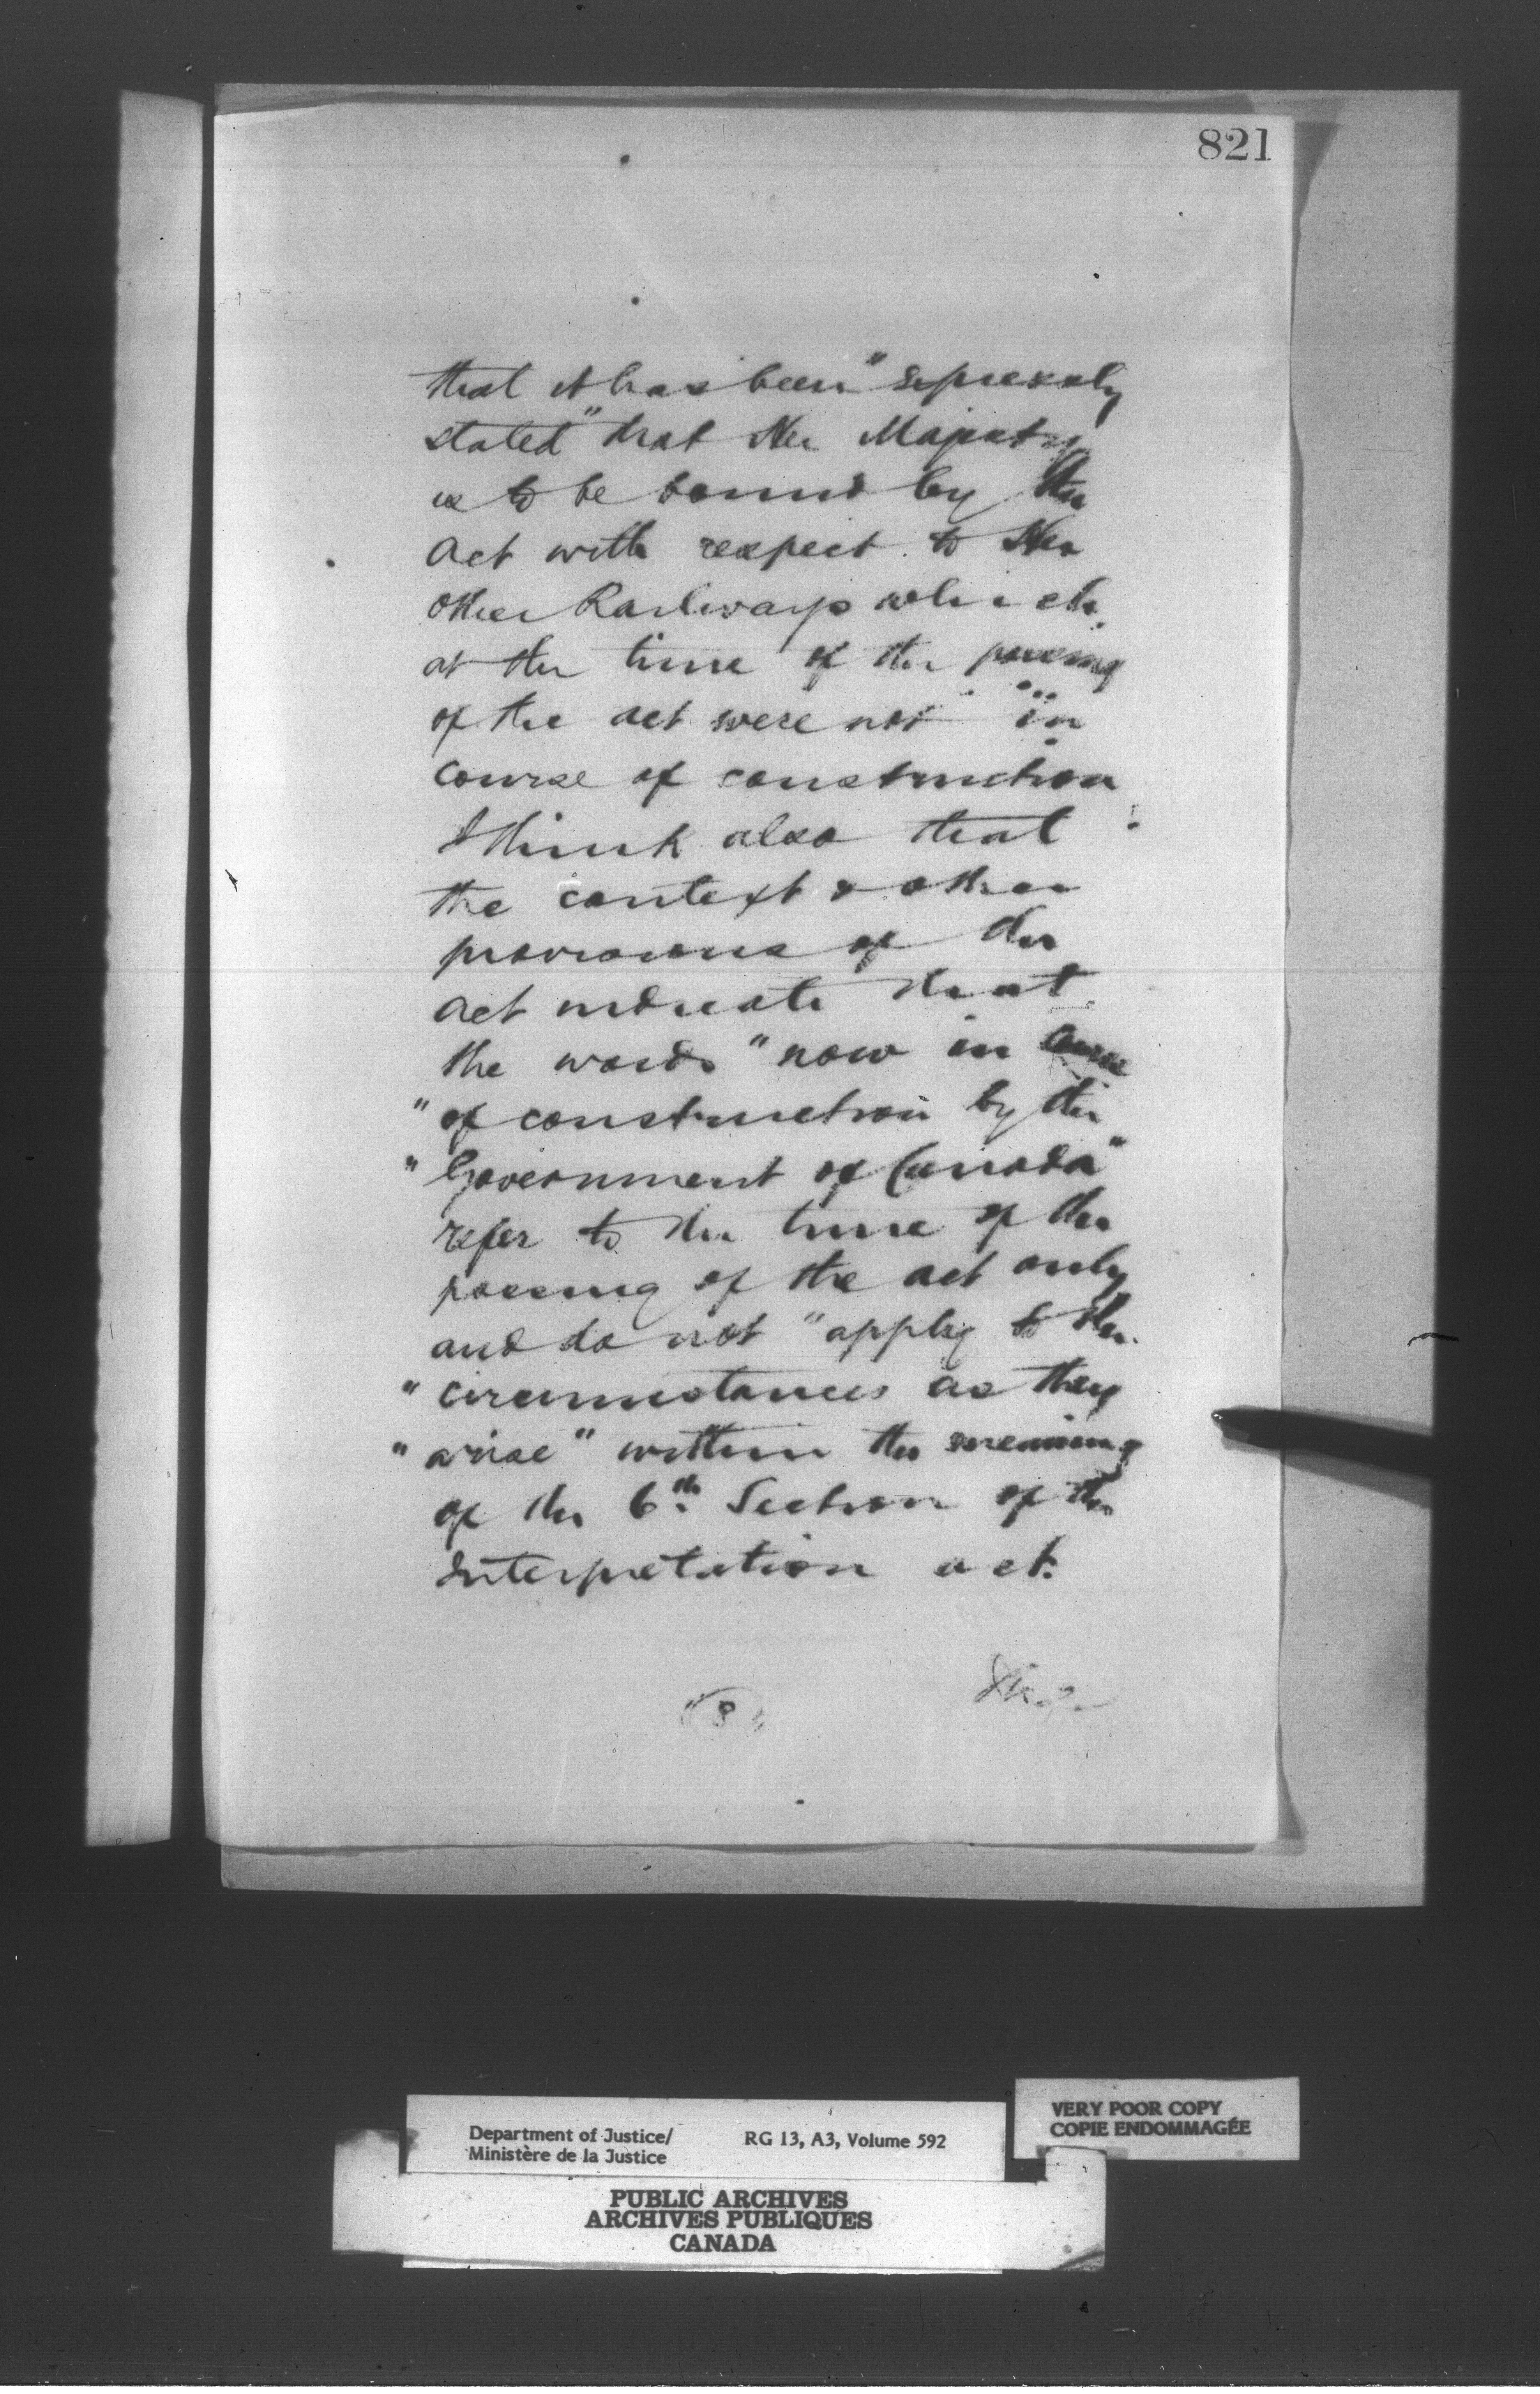 821
that it has been "expressly
stated" that Her Majesty
is to be bound by the
Act with respect to the
other Railways which
at the time of the passing
of the act were not "in
course of construction
I think also that
the context & other
provisions of the
act indicate that
the words "now in course
"of construction by the
"Government of Canada"
refer to the time of the
passing of the act only
and do not "apply to the
"circumstances as they
"arise" within the meaning
of the 6th Section of the
Interpretation act.
8
Department of Justice/
Ministère de la Justice
RG 13, A3, Volume 592
VERY POOR COPY
COPIE ENDOMMAGÉE
PUBLIC ARCHIVES
ARCHIVES PUBLIQUES
CANADA